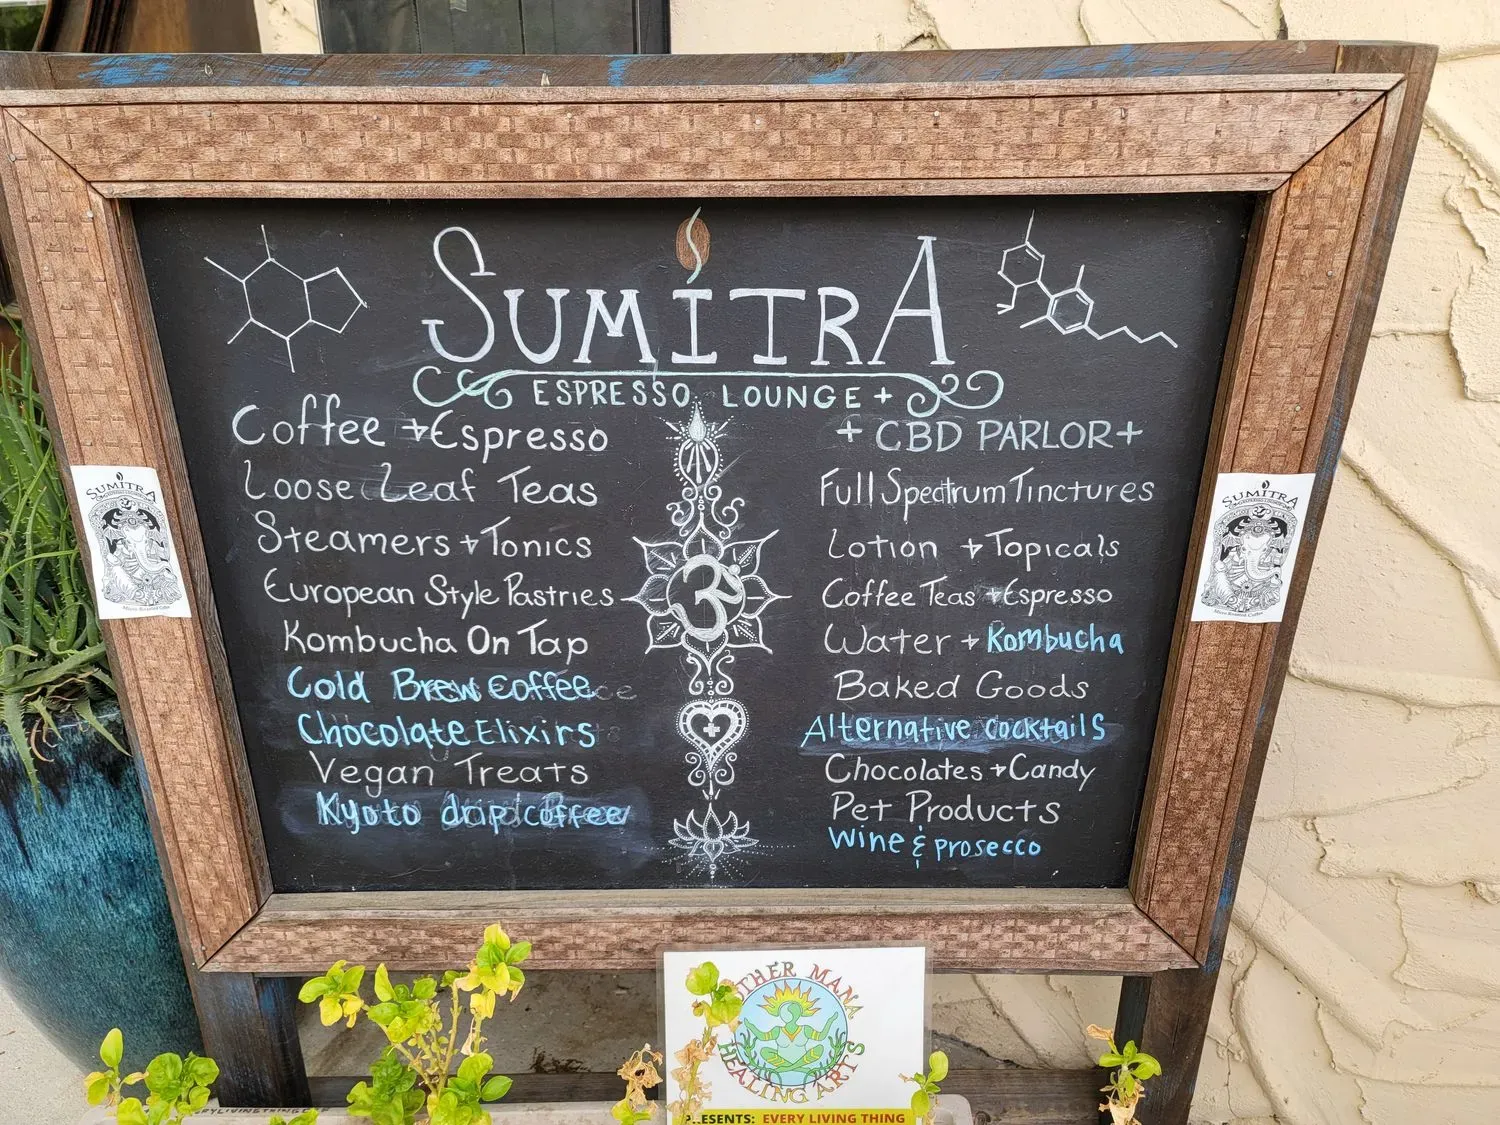 SUMITRA
ESPRESSO LOUNGE +
Coffee + Espresso
Loose Leaf Teas
Steamers + Tonics
European Style Pastries
Kombucha On Tap
Cold Brew Coffee
Chocolate Elixirs
Vegan Treats
Kyoto drip coffee
+ CBD PARLOR +
Full Spectrum Tinctures
Lotion + Topicals
Coffee Teas + Espresso
Water + Kombucha
Baked Goods
Alternative cocktails
Chocolates + Candy
Pet Products
Wine & prosecco
SUMITRA
SUMITRA
MANA
HEALING ARTS
EVERY LIVING THING